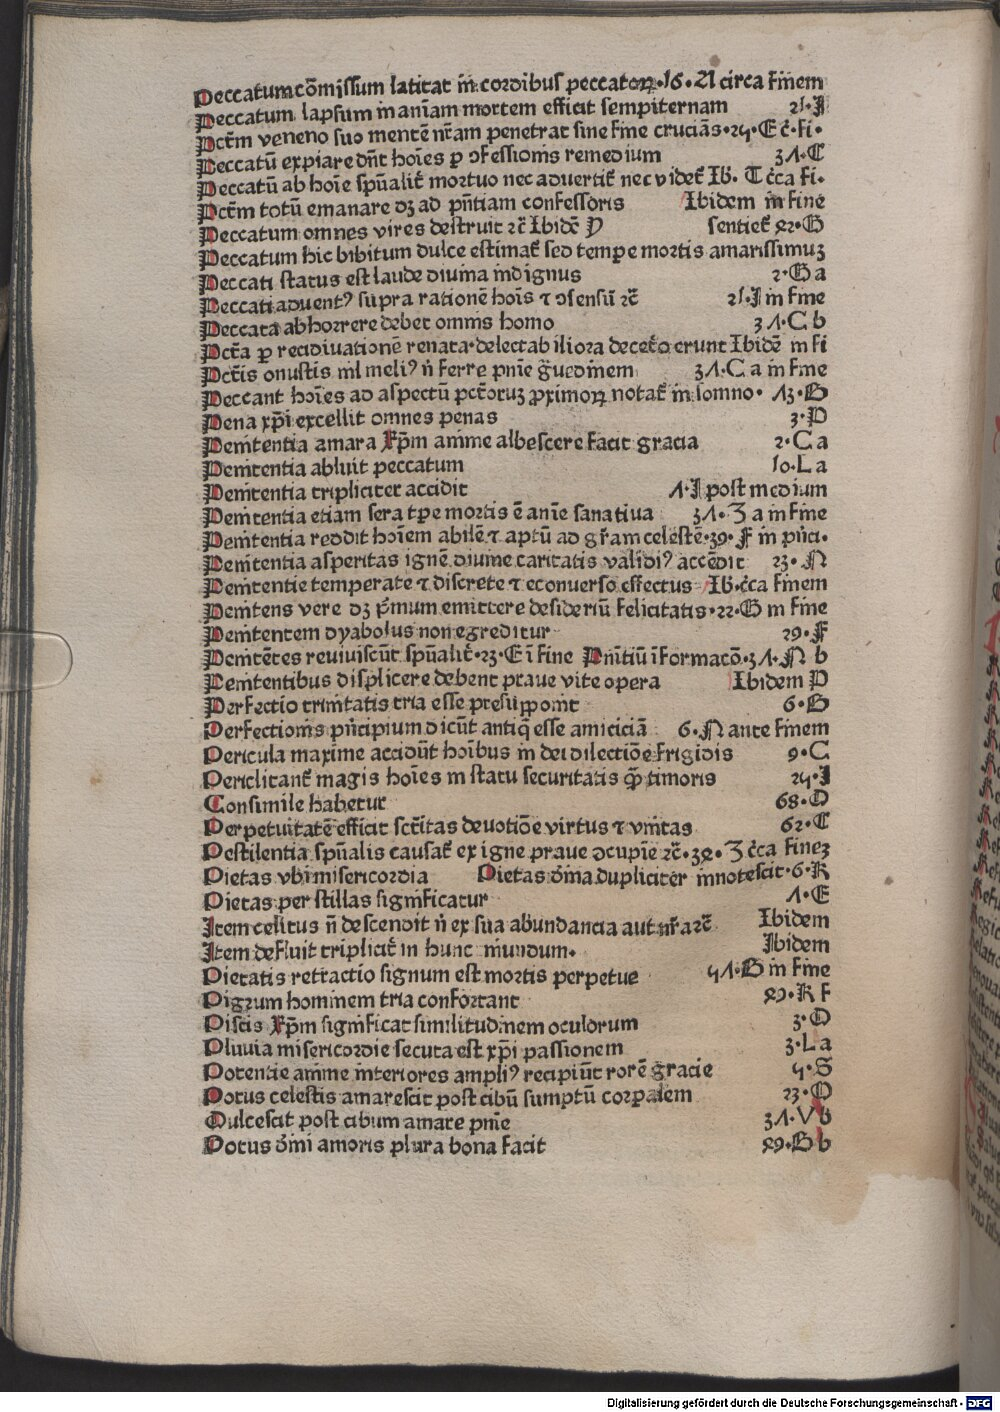 Peccatum cōmissum latitat in cordibus peccatoꝝ·16·A circa finem
Peccatum lapsum in aniam mortem efficit sempiternam 21·I
Pctm̄ veneno suo mentē nr̄am penetrat sine fine crucians·24·E c̄·fi·
Peccatū expiare dn̄t hoīes ꝑ ↄfessionis remedium 31·C
Peccatū ab hoīe spūalit̄ mortuo nec aduertit̄ nec videt̄ Ib· T c̄ca fi·
Pctm̄ totū emanare dꝫ ad pn̄tiam confessoris Ibidem in fine
Peccatum omnes vires destruit ⁊c̄ Ibidē Y sentiet̄ 42·G
Peccatum hic bibitum dulce estimat̄ sed tempe mortis amarissimuꝫ
Peccati status est laude diuina indignus 2·G a
Peccati aduentꝰ supra rationē hoīs ⁊ ↄsensū ⁊c̄ 21·I in fine
Peccata abhorrere debet omnis homo 31·C b
Pctā ꝑ recidiuationē renata·delectabiliora decet̄o erunt Ibidē in fi
Pctīs onustis nil meliꝰ n̄ ferre pnīe g̈uedinem 31·C a in fine
Peccant hoīes ad aspectū pctōruꝫ proximoꝝ notat̄ in somno· 13·B
Pena xp̄i excellit omnes penas 3·P
Penitentia amara xp̄m anime albescere facit gracia 2·C a
Penitentia abluit peccatum 10·L a
Penitentia tripliciter accidit 1·I post medium
Penitentia etiam sera tꝑe mortis ē anīe sanatiua 31·Z a in fine
Penitentia reddit hoīem abilē ⁊ aptū ad gr̄am celestē·39·F in pn̄ci·
Penitentia asperitas ignē diuine caritatis validiꝰ accēdit 23·N
Penitentie temperate ⁊ discrete ⁊ econuerso effectus Ib·c̄ca finem
Penitens vere dꝫ p̄mum emittere desideriū felicitatis·22·G in fine
Penitentem dyabolus non egreditur 29·F
Penitētes reuiuiscūt spūalit̄·23·E ī fine Pnītiū īformacō·31·N b
Penitentibus displicere debent praue vite opera Ibidem P
Perfectio trinitatis tria esse presupponit 6·B
Perfectionis pn̄cipium dicūt antiqͥ esse amiciciā 6·N ante finem
Pericula maxime accidūt hoībus in dei dilectiōe frigidis 9·C
Periclitant̄ magis hoīes in statu securitatis qͣ̄ timoris 24·I
Consimile habetur 68·O
Perpetuitatē efficit sctītas deuotiōe virtus ⁊ vnitas 62·C
Pestilentia spūalis causat̄ ex igne praue ↄcupīe ⁊c̄·34·Z c̄ca fineꝫ
Pietas vbi misericordia Pietas dn̄ia dupliciter innotescit·6·K
Pietas per stillas significatur 1·E
Item celitus n̄ descendit n̄ ex sua abundancia aut nr̄a ⁊c̄ Ibidem
Item defluit triplicit̄ in hunc mūndum· Ibidem
Pietatis retractio signum est mortis perpetue 51·B in fine
Pigrum hominem tria confortant 49·K f
Piscis xp̄m significat similitudinem oculorum 3·O
Pluuia misericordie secuta est xp̄i passionem 3·L a
Potentie anime interiores ampliꝰ recipiūt rorē gracie 5·S
Potus celestis amarescit post cibū sumptū corpalem 23·O
Dulcescit post cibum amare pnīe 31·V b
Potus dn̄i amoris plura bona facit 49·B b
Digitalisierung gefördert durch die Deutsche Forschungsgemeinschaft - DFG